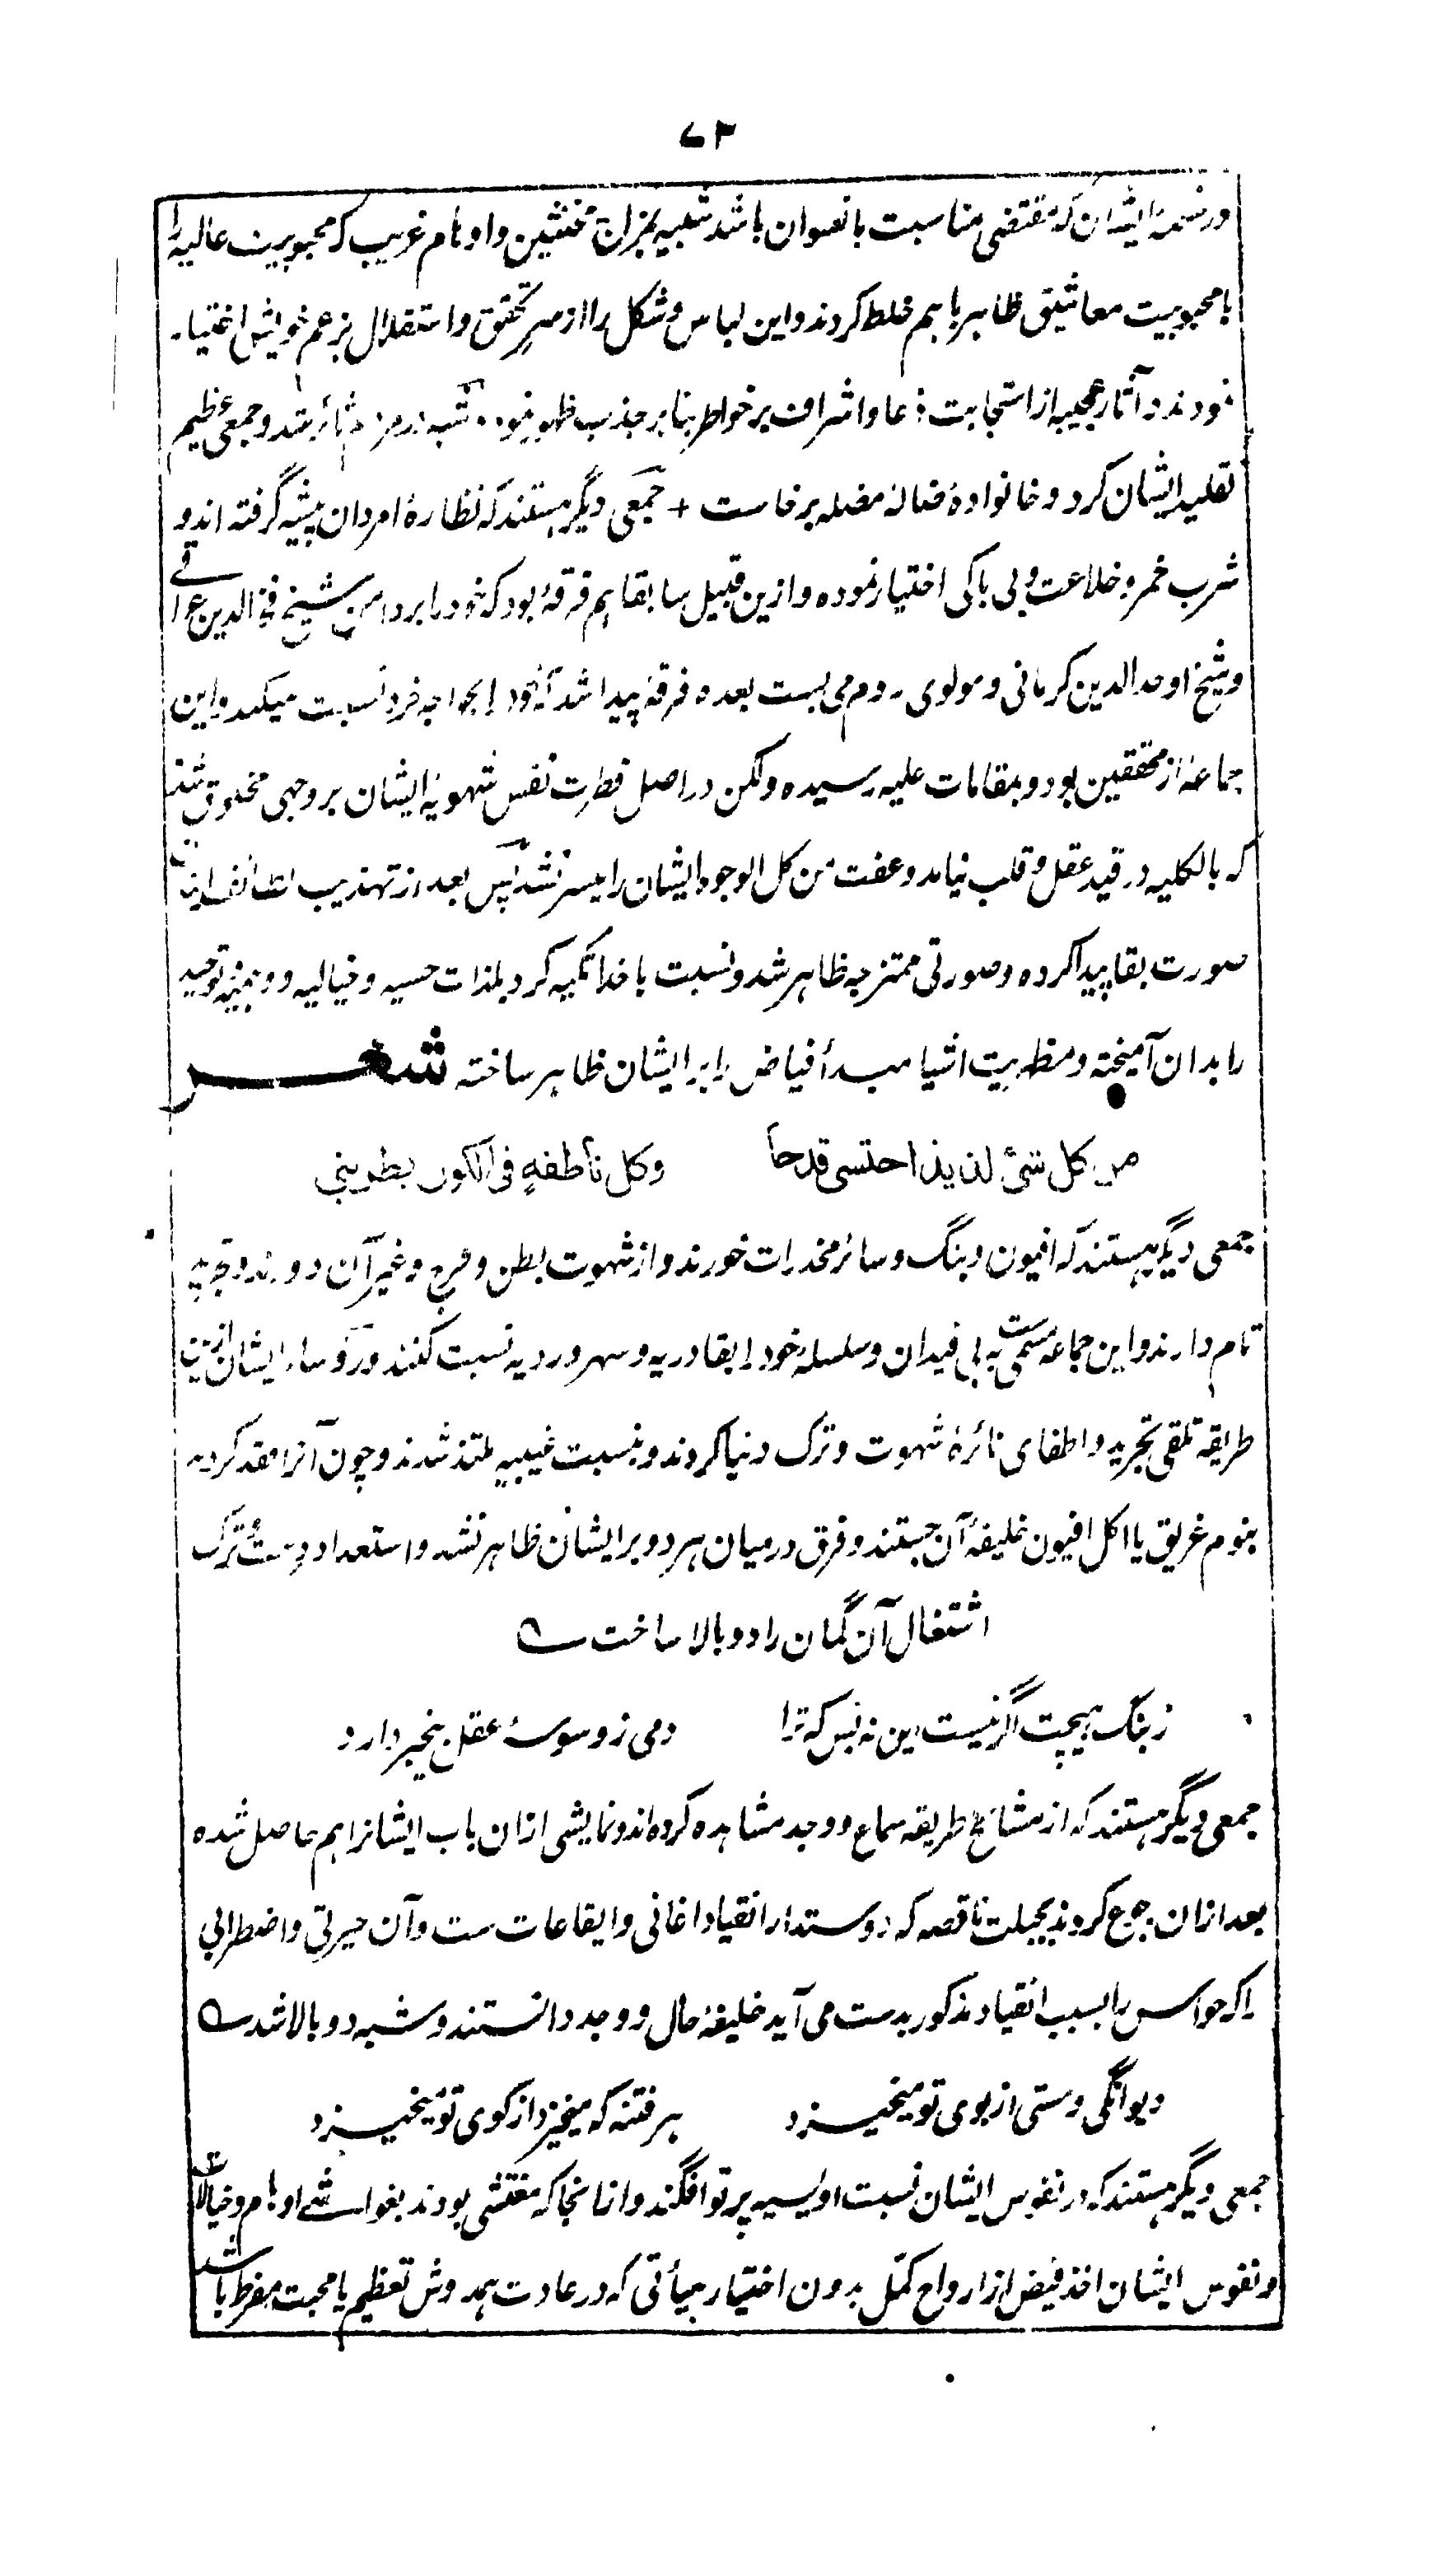 ۷۳
مقتضی مناسبت با نسوان باشد شبیه بمزاج مخنثین و اوهام غریب که محبوبیت عالیه را
با محبوبیت معاشیق ظاهر باهم خلط کردند و این لباس و شکل را از سر تحقق و استقلال بزعم خویش اختیار
نمودند و آثار عجیبه از استجابت دعا و اشراف بر خواطر بنا بر جذب ظهور نمود شبه در مردم متأثر شد و جمعی عظیم
تقلید ایشان کرد و خانوادۀ ضاله مضله برخاست + جمعی دیگر هستند که نظارۀ امردان پیشه گرفته اند و
شرب خمر و خلاعت و بی باکی اختیار نموده و ازین قبیل سابقا هم فرقۀ بود که خود را بر دامن شیخ فخرالدین عراقے
و شیخ اوحدالدین کرمانی و مولوی روم می بست بعده فرقۀ پیدا شد که خود را بخواجه خرد نسبت میکند و این
جماعه از محققین بود و بمقامات علیه رسیده ولکن در اصل فطرت نفس شهویۀ ایشان بر وجهی مخلوق شد
که بالکلیه در قید عقل و قلب نیامد و عفت من کل الوجوه ایشان را میسر نشد پس بعد از تهذیب لطائف
صورت بقا پیدا کرده و صورتی ممتزجه ظاهر شد و نسبت با خدا تکیه کرد بلذات حسیه و خیالیه و توحید
را بدان آمیخته و مظهریت اشیا مبدأ فیاض را بر ایشان ظاهر ساخته شعر
من کل شئ لذیذ احتسی قدحا وکل ناطقة فی الکون یطربنی
جمعی دیگر هستند که افیون و بنگ و سائر مخدرات خورند و از شهوت بطن و فرج و غیر آن دورند و تجرید
تام دارند و این جماعه مسمی ست به بی قیدان و سلسله خود را بقادریه و سهروردیه نسبت کنند و رؤسا ایشان ازین
طریقه تلقی تجرید و اطفای نائرۀ شهوت و ترک دنیا کردند و بنسبت غیبیه ملتذ شدند و چون آنرا فقد کردند
بنوم غریق یا اکل افیون خلیفۀ آن جستند و فرق درمیان هردو بر ایشان ظاهر نشد و استعداد و ترک
اشتغال آن گمان را دوبالا ساخت ؎
ز بنگ هیچت اگر نیست این نه بس که ترا دمی ز وسوسۀ عقل بیخبر دارد
جمعی دیگر هستند که از مشائخ طریقه سماع و وجد مشاهده کرده اند و نمایشی ازان باب ایشانرا هم حاصل شده
بعد ازان رجوع کردند بجبلت ناقصه که دوستدار انقیاد اغانی و ایقاعات ست و آن حیرتی و اضطرابی
را که حواس را بسبب انقیاد مذکور بدست می آید خلیفۀ حال و وجد دانستند و شبه دوبالا شد ؎
دیوانگی و مستی از بوی تو میخیزد هر فتنه که میخیزد از کوی تو میخیزد
جمعی دیگر هستند که در نفوس ایشان نسبت اویسیه پرتو افگند و از انجا که مقتضی بودند بغواشے اوهام و خیالات
و نفوس ایشان اخذ فیض از ارواح کمّل بدون اختیار هیأتی که در عادت همدوش تعظیم یا محبت مفرط باشد